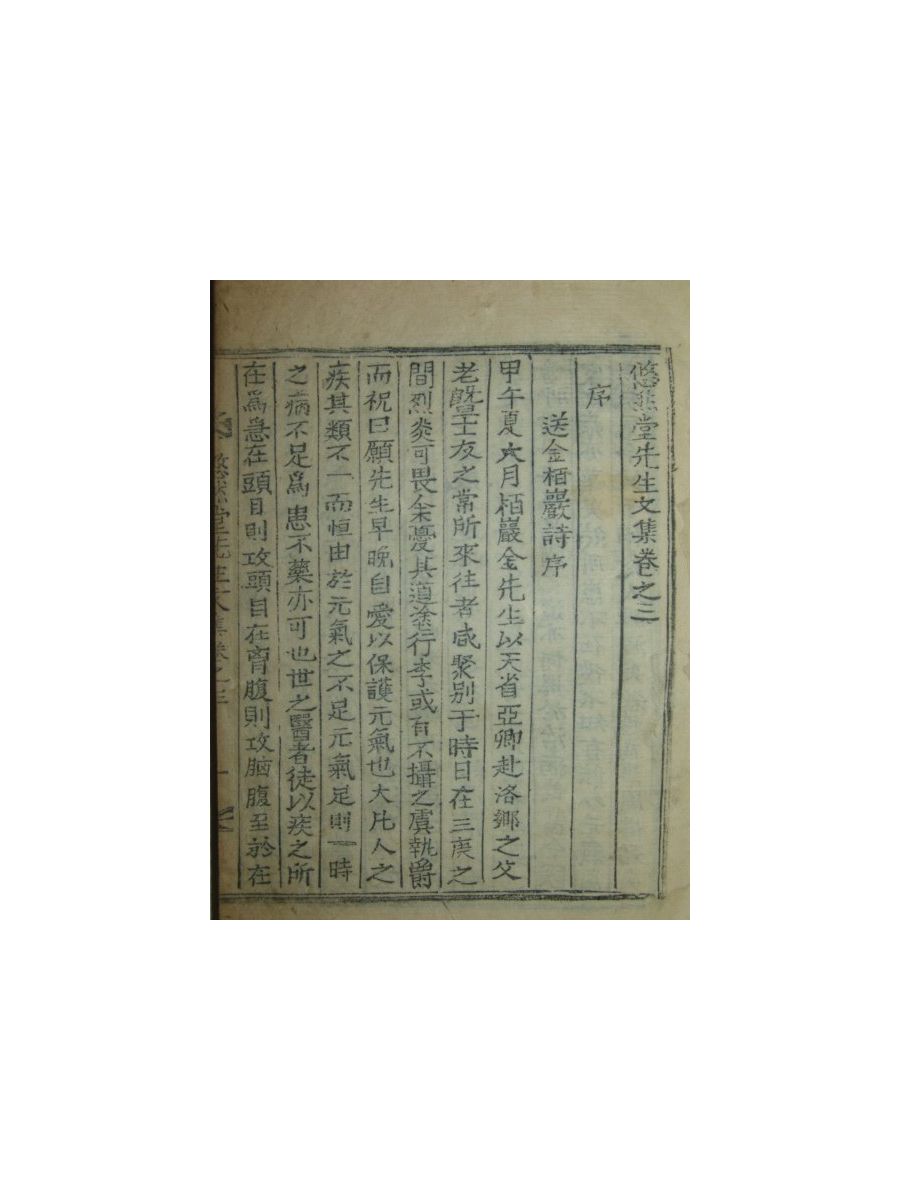 悠然堂先生文集卷之三
序
送金栢巖詩序
甲午夏六月栢巖金先生以天省亞卿赴洛鄕之父
老曁士友之常所來往者咸聚别于時日在三庚之
間烈炎可畏余憂其道塗行李或有不攝之虞執爵
而祝曰願先生早晩自愛以保護元氣也大凡人之
疾其類不一而恒由於元氣之不足元氣足則一時
之病不足爲患不藥亦可也世之醫者徒以疾之所
在爲急在頭目則攻頭目在胷腹則攻胸腹至於在
悠然堂先生文集卷之三 一